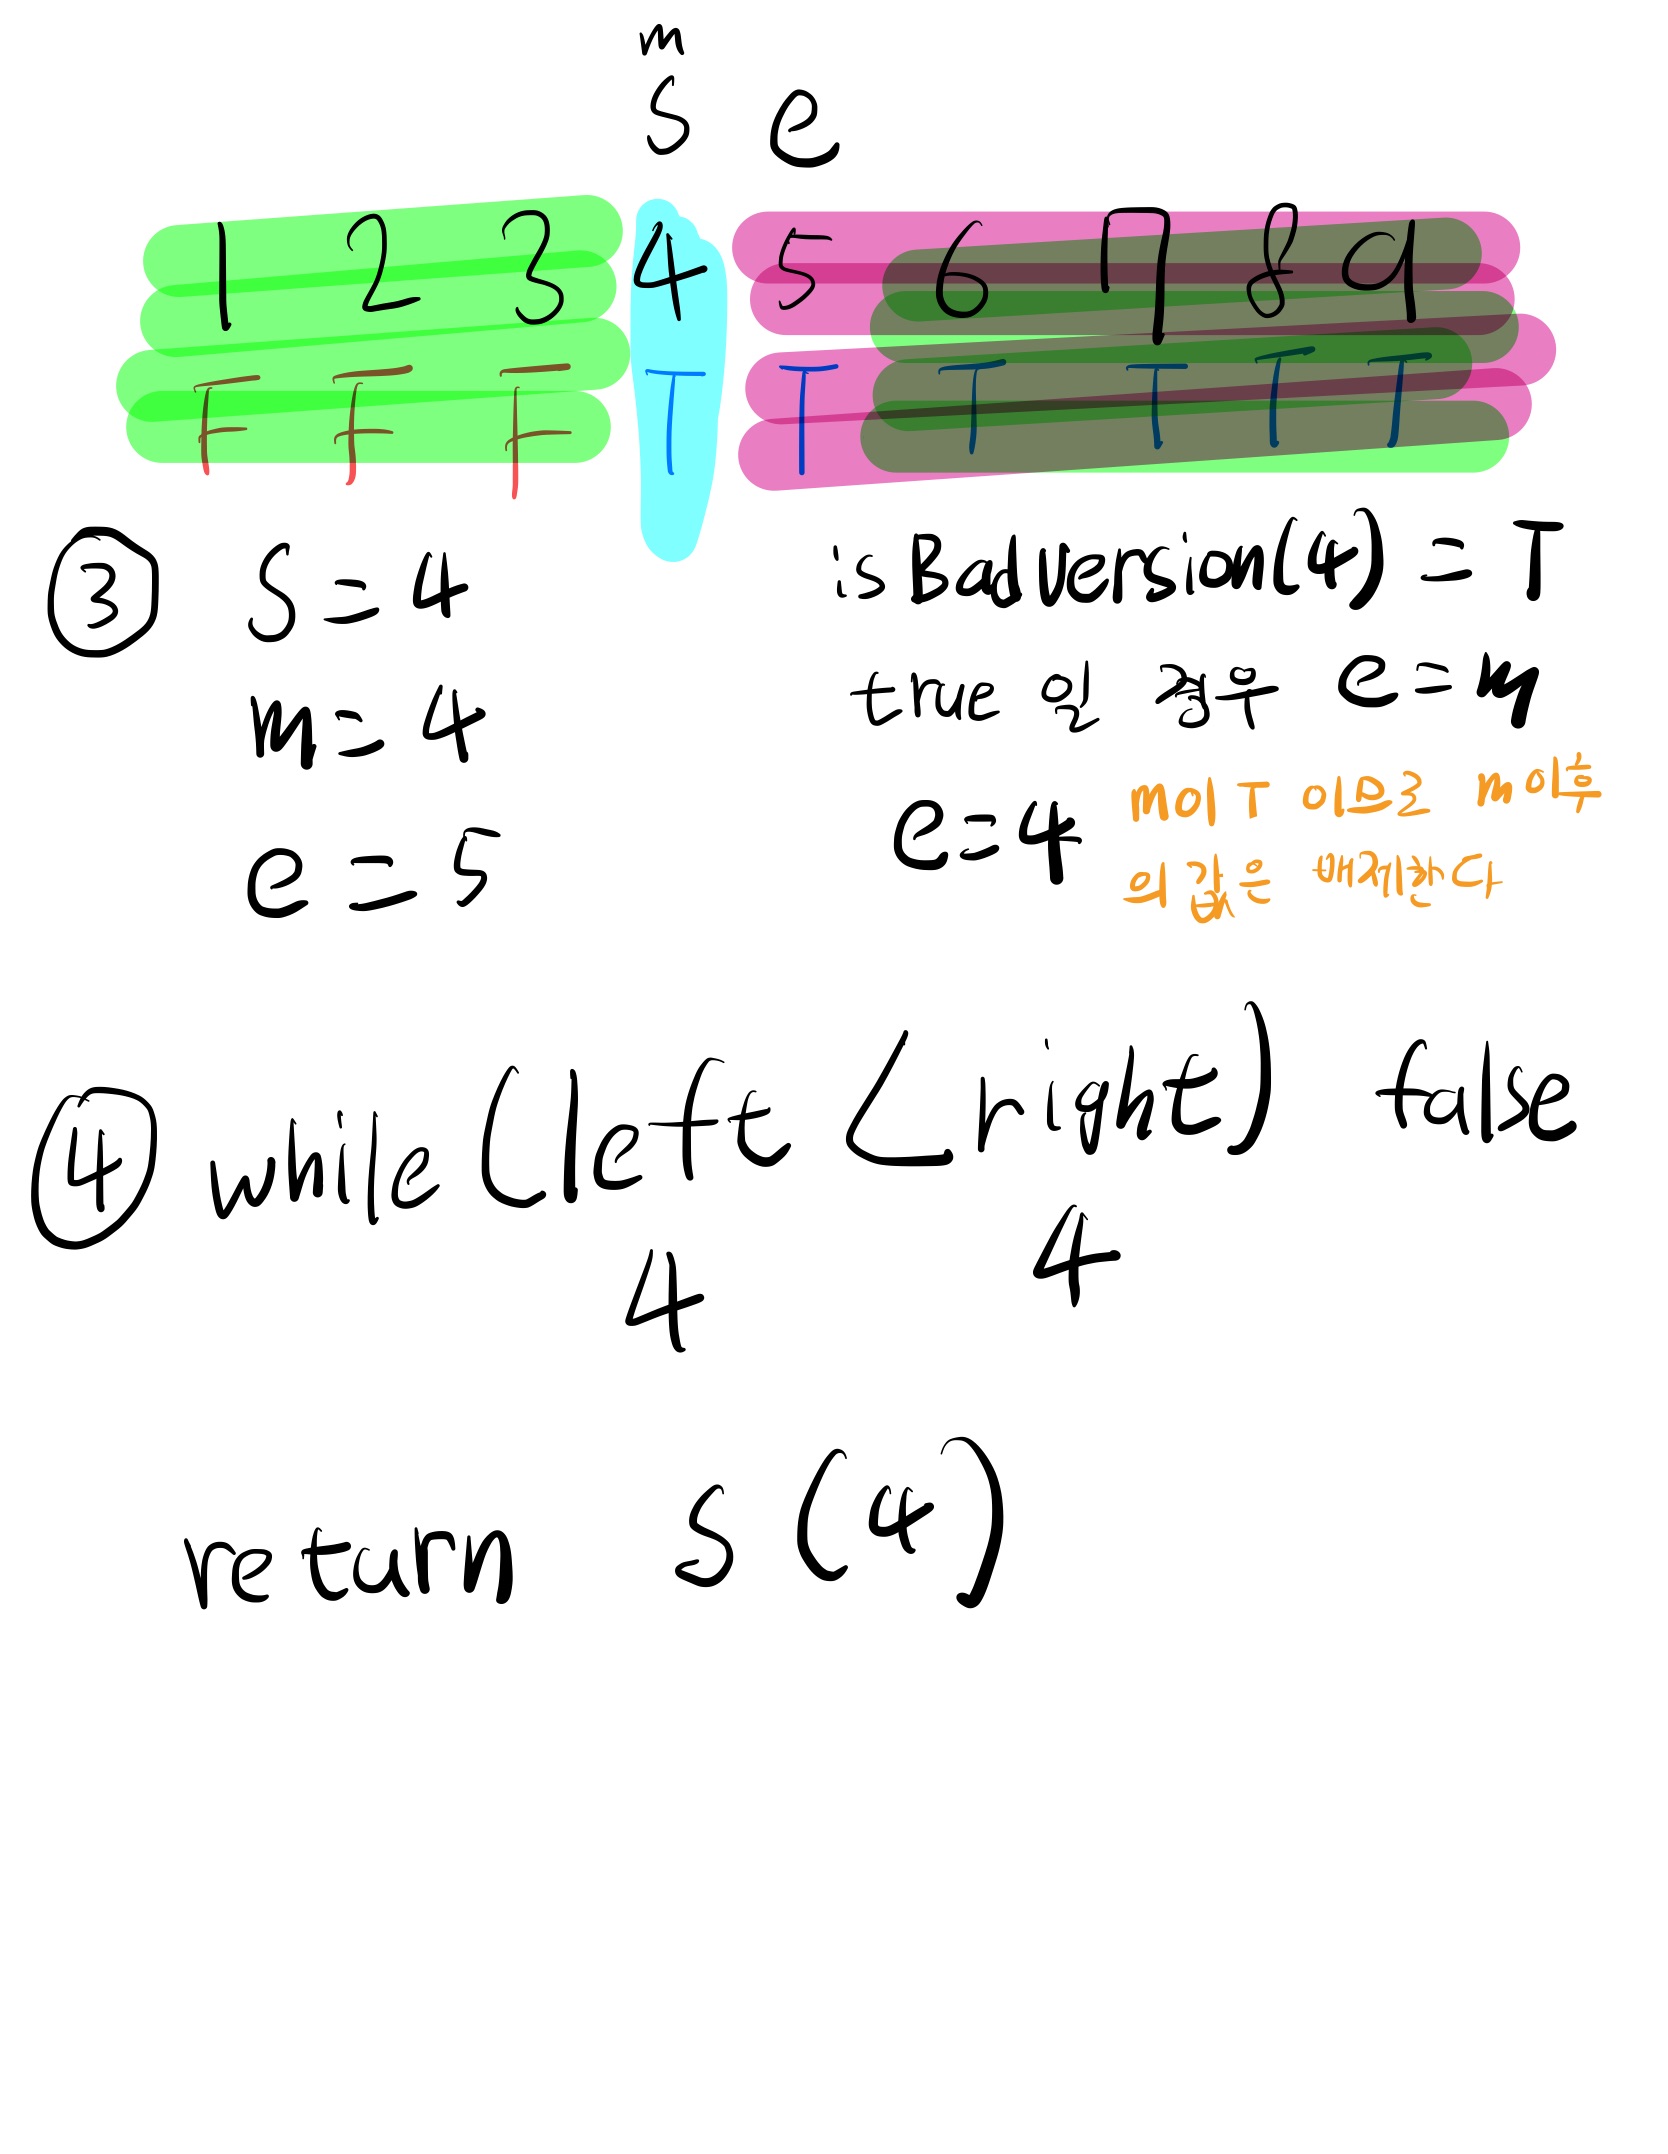 m
S e
1 2 3 4 5 6 7 8 9
F F F T T T T T T
③ S = 4 isBadVersion(4) = T
m = 4 true 일 경우 e = m
e = 5 e = 4 m이 T 이므로 m 이후
의 값은 배제한다
④ while (left < right) false
4 4
return S (4)